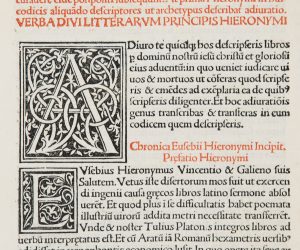 codicis aliquãdo descriptores ut archetypus describat adiuratio.
VERBA DIVI LITTERARVM PRINCIPIS HIERONYMI
ADiuro te quisq̃s hos descripseris libros
p dominũ nostrũ iesũ christũ et gloriosũ
eius aduentũ: in quo ueniet iudicare ui
uos & mortuos ut cõferas quod scripse
ris & emẽdes ad exẽplaria ea de quib9
scripseris diligenter. Et hoc adiuratiõis
genus transcribas & transferas in eum
codicem quem descripseris.
Chronica Eusebii Hieronymi Incipit.
Prefatio Hieronymi
EVsebius Hieronymus Vincentio & Galieno suis
Salutem. Vetus iste disertorum mos fuit ut exercen
di ingenii causa grẽcos libros latino sermone absol
uerent. Et quod plus i se difficultatis habet poemata
illustriũ uirorũ addita metri necessitate transferrẽt.
Vnde & noster Tulius Platonis integros libros ad
uerbũ interpretatus est. Et cũ Aratũ iã Romanũ hexametris uersibꝰ